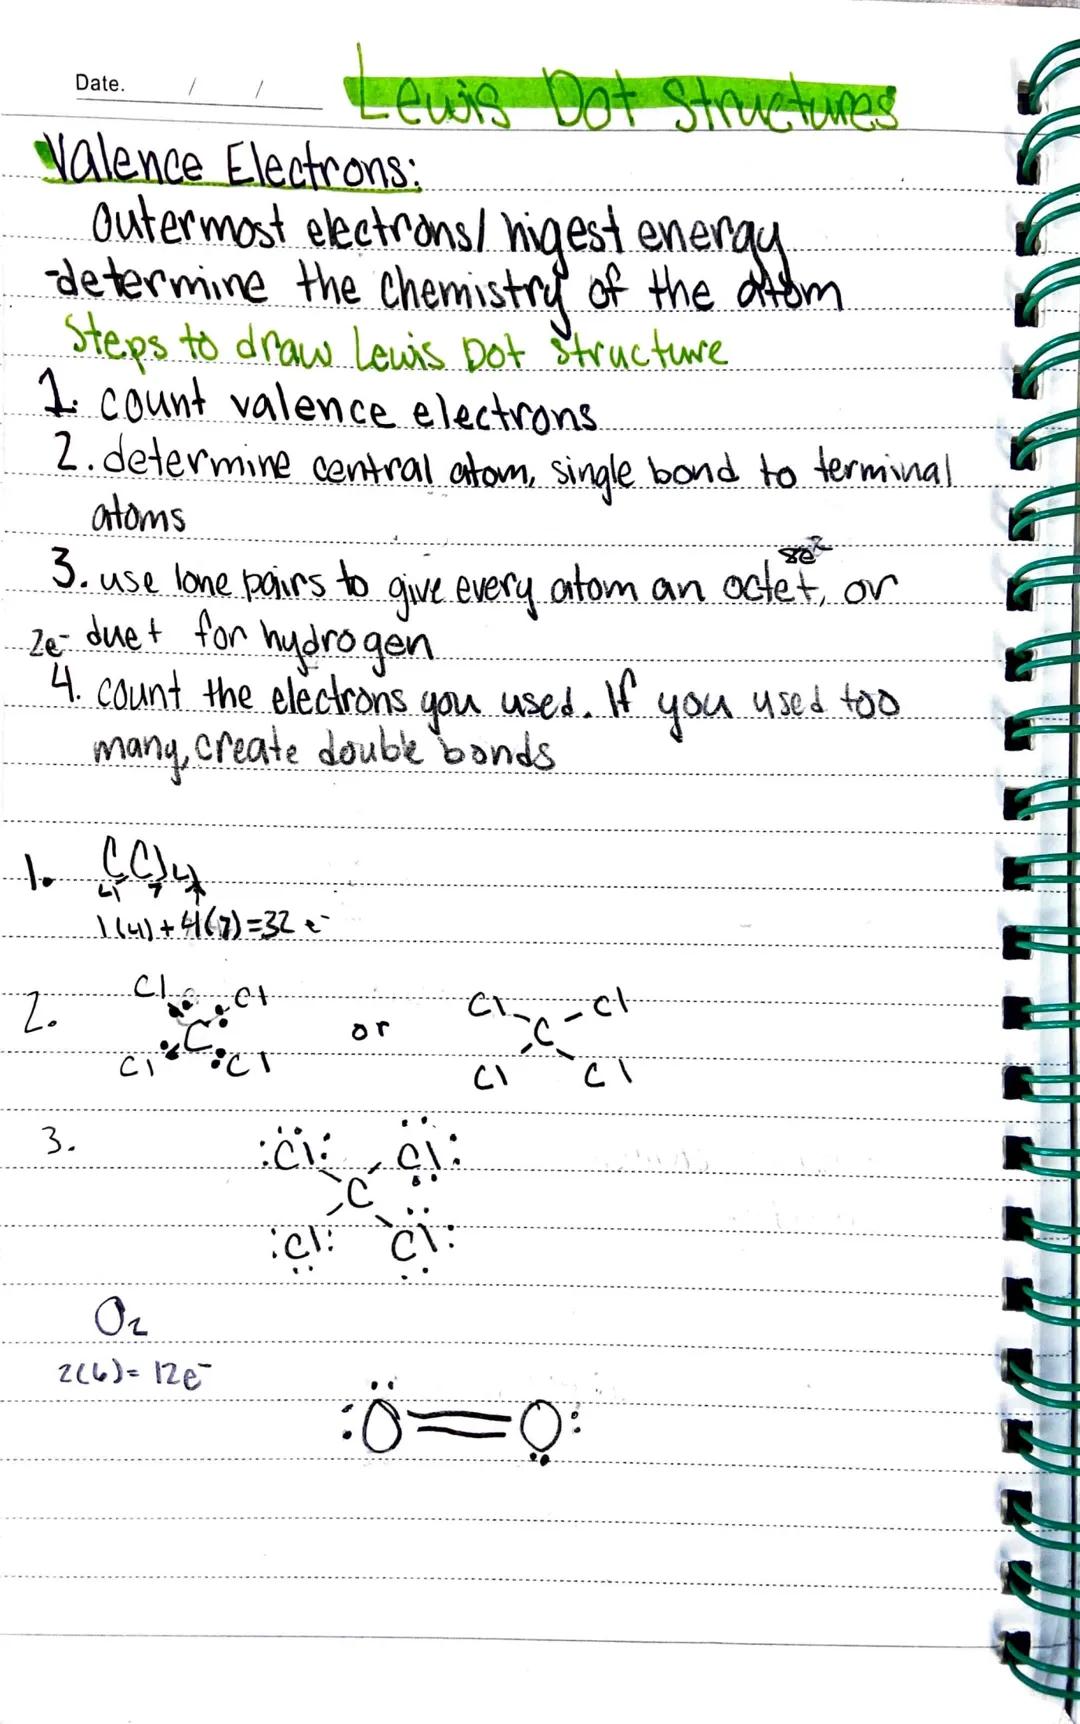 Date. / /
Lewis Dot Structures
Valence Electrons:
Outermost electrons/ higest energy
-determine the chemistry of the atom
Steps to draw Lewis Dot Structure
1. count valence electrons
2. determine central atom, single bond to terminal
atoms
8e-
3. use lone pairs to give every atom an octet, or
2e- duet for hydrogen
4. count the electrons you used. If you used too
many, create double bonds
1. CCl4
4 7
1(4)+4(7)=32 e-
2. Cl Cl Cl Cl
C or C
Cl Cl Cl Cl
3. :Cl: Cl:
C
:Cl: Cl:
O2
2(6)= 12e-
:O=O: